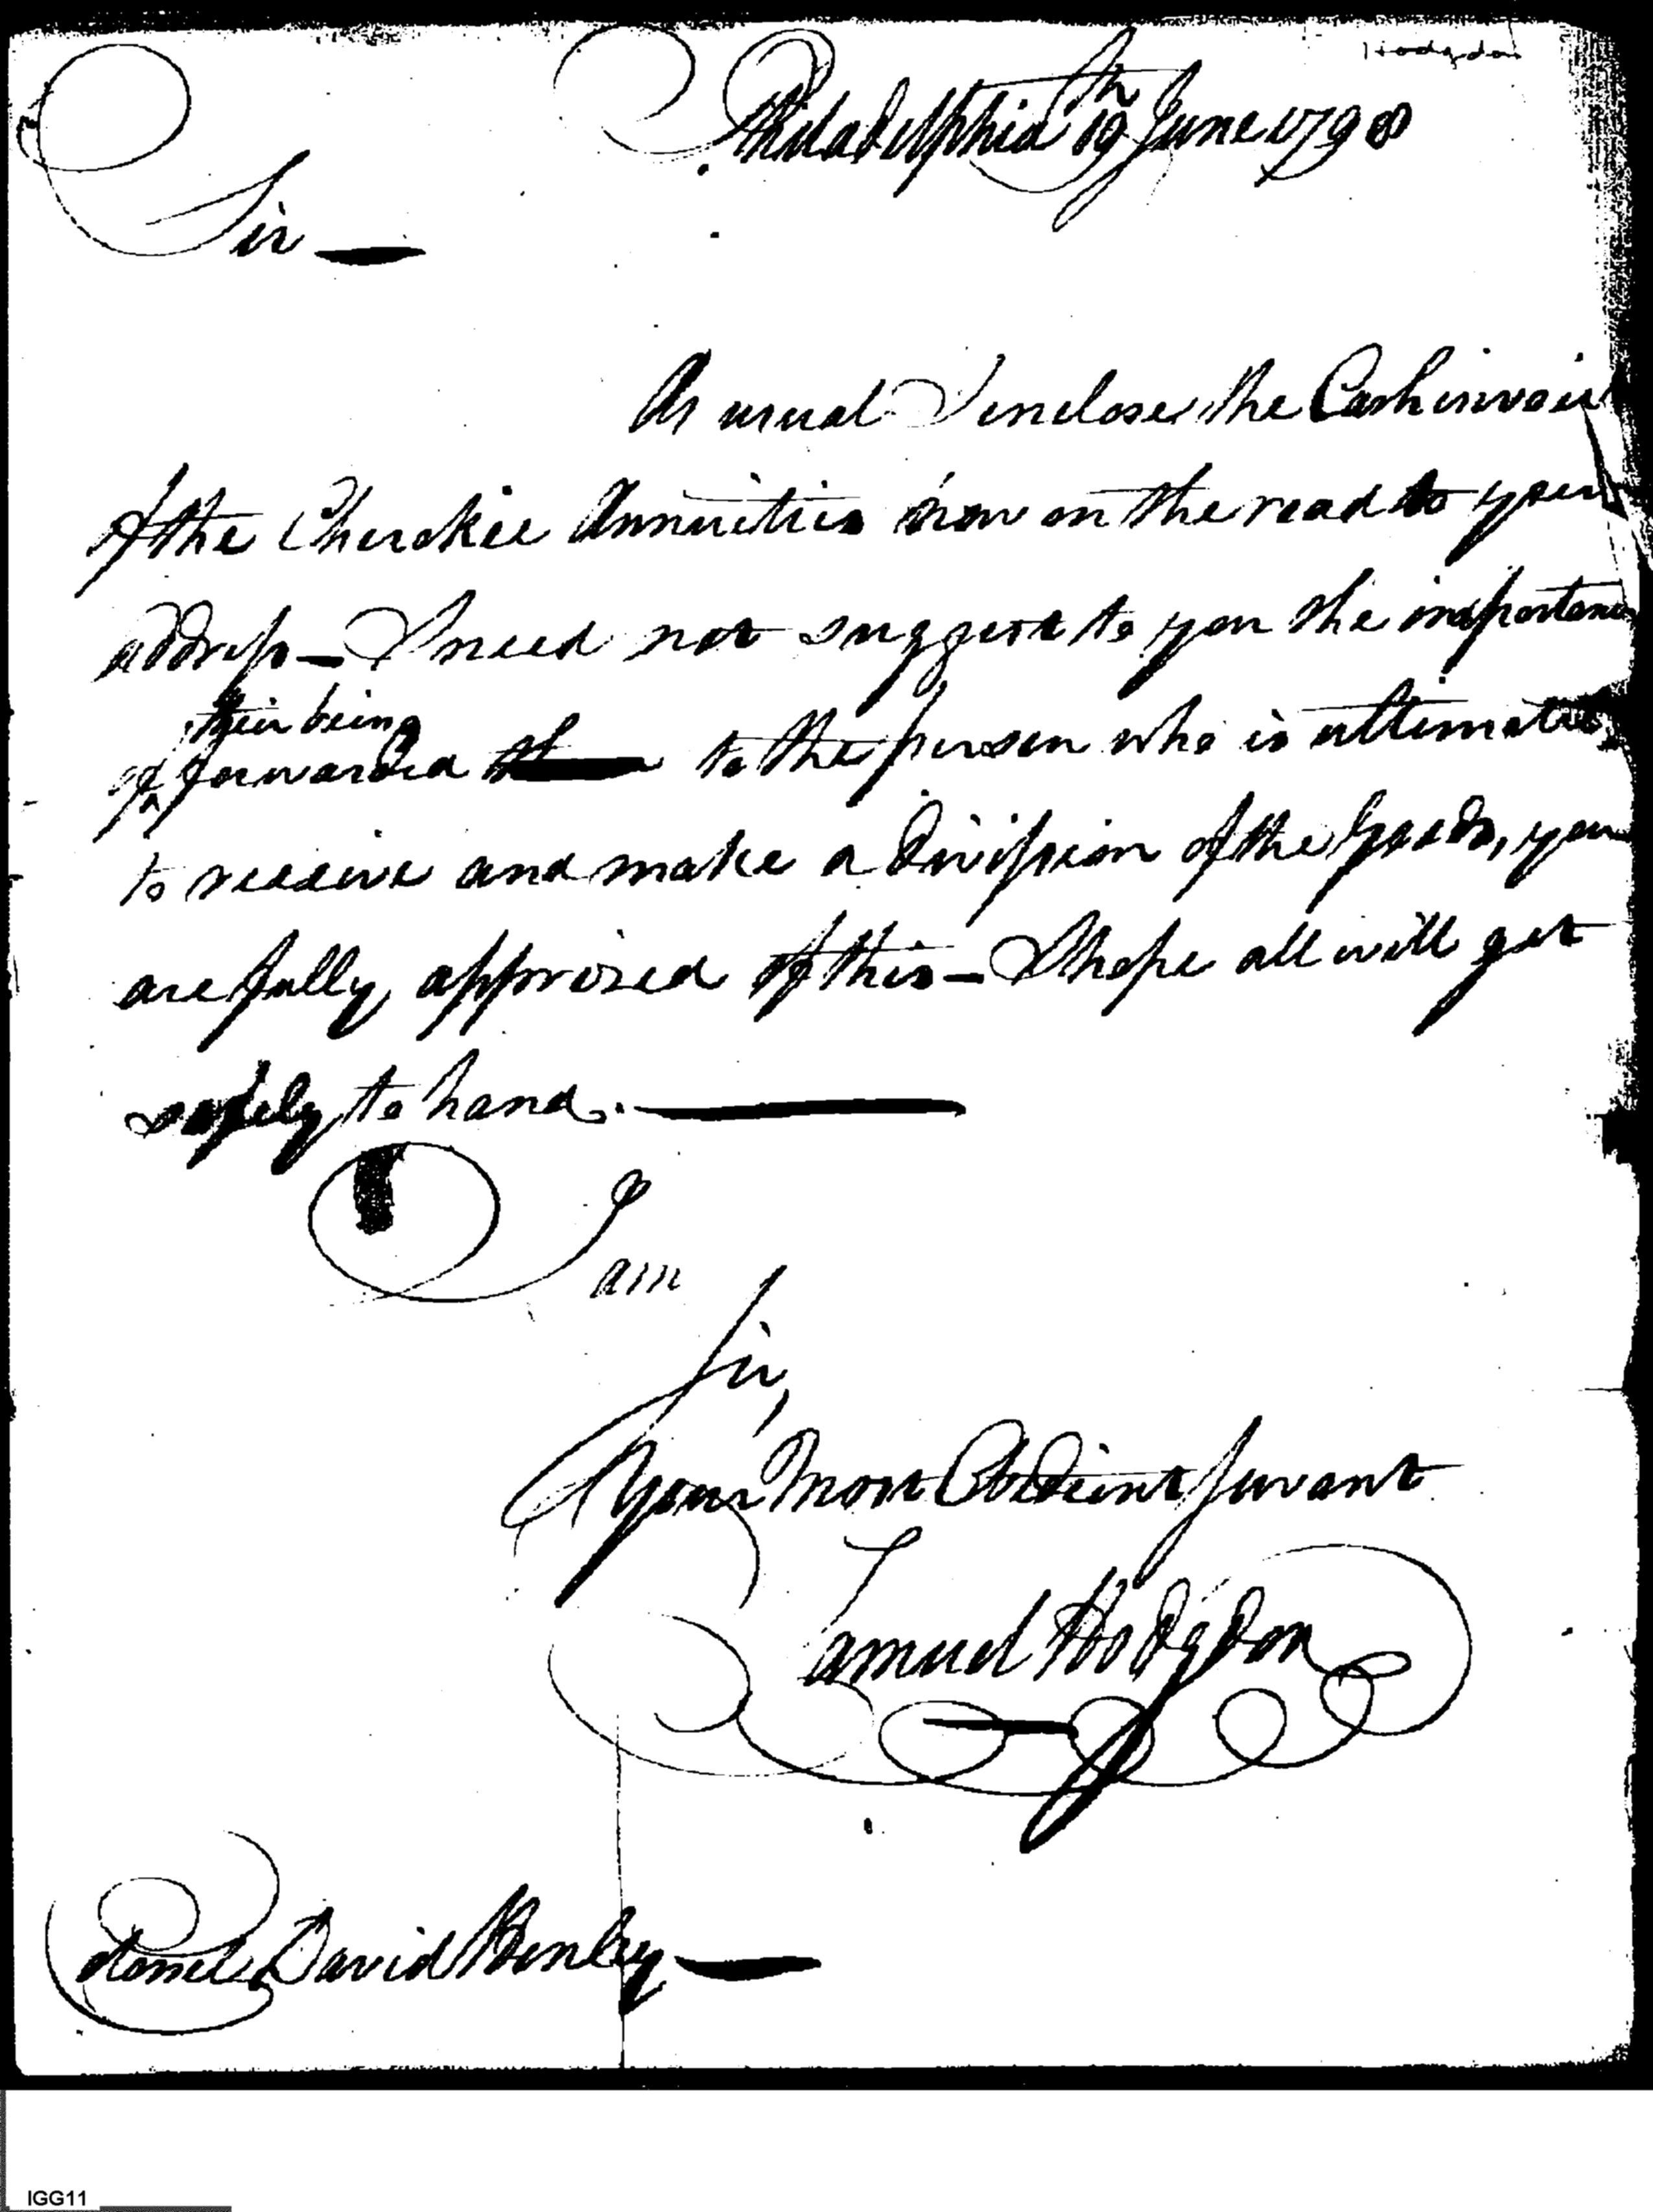 Hodgdon
Philadelphia 19th June 1798
Sir —
As usual I enclose the Cash invoice
of the Cherokee Annuities now on the road to your
address — I need not suggest to you the importance
their being
of forwarded to the person who is ultimately
to receive and make a division of the Goods, you
are fully apprized of this — I hope all will get
safely to hand. —
I am
Sir,
Your Most Obedient Servant
Samuel Hodgdon
Colonel David Henley —
IGG11